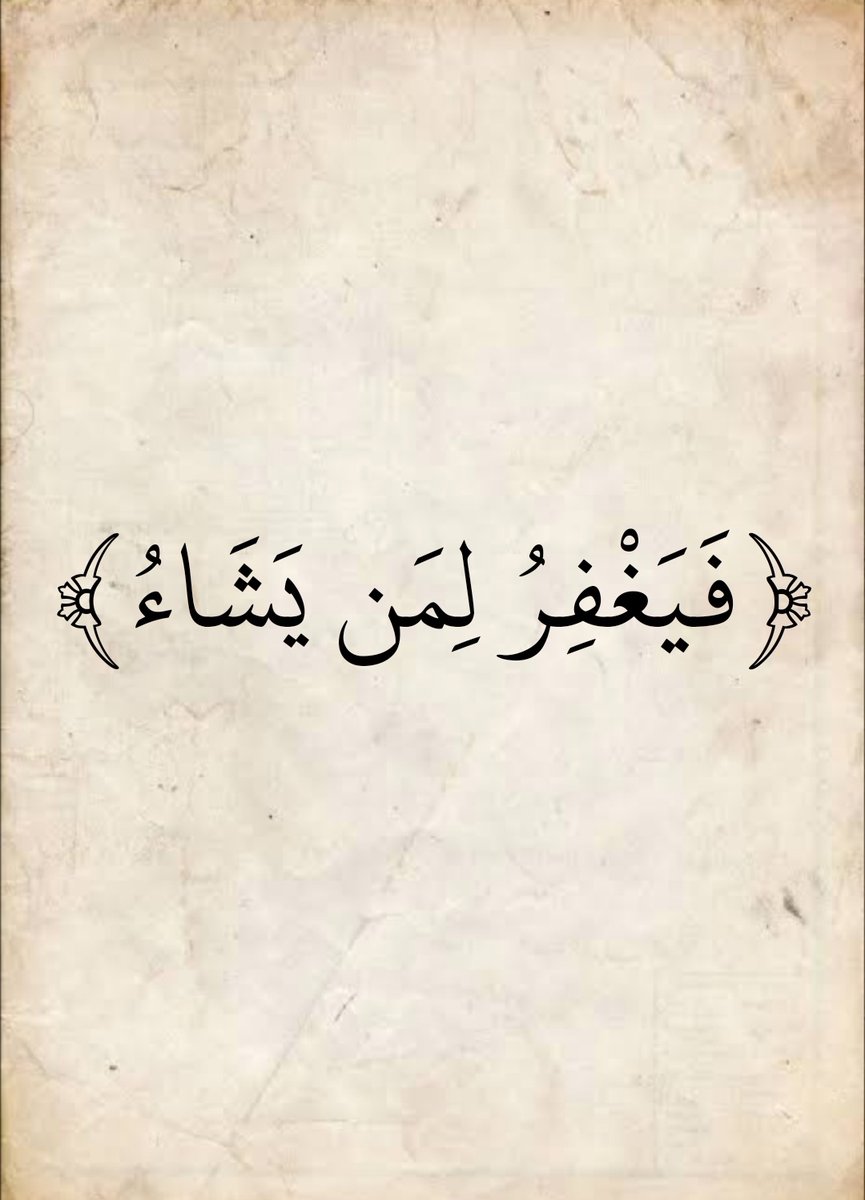 ﴿فَيَغْفِرُ لِمَن يَشَاءُ﴾